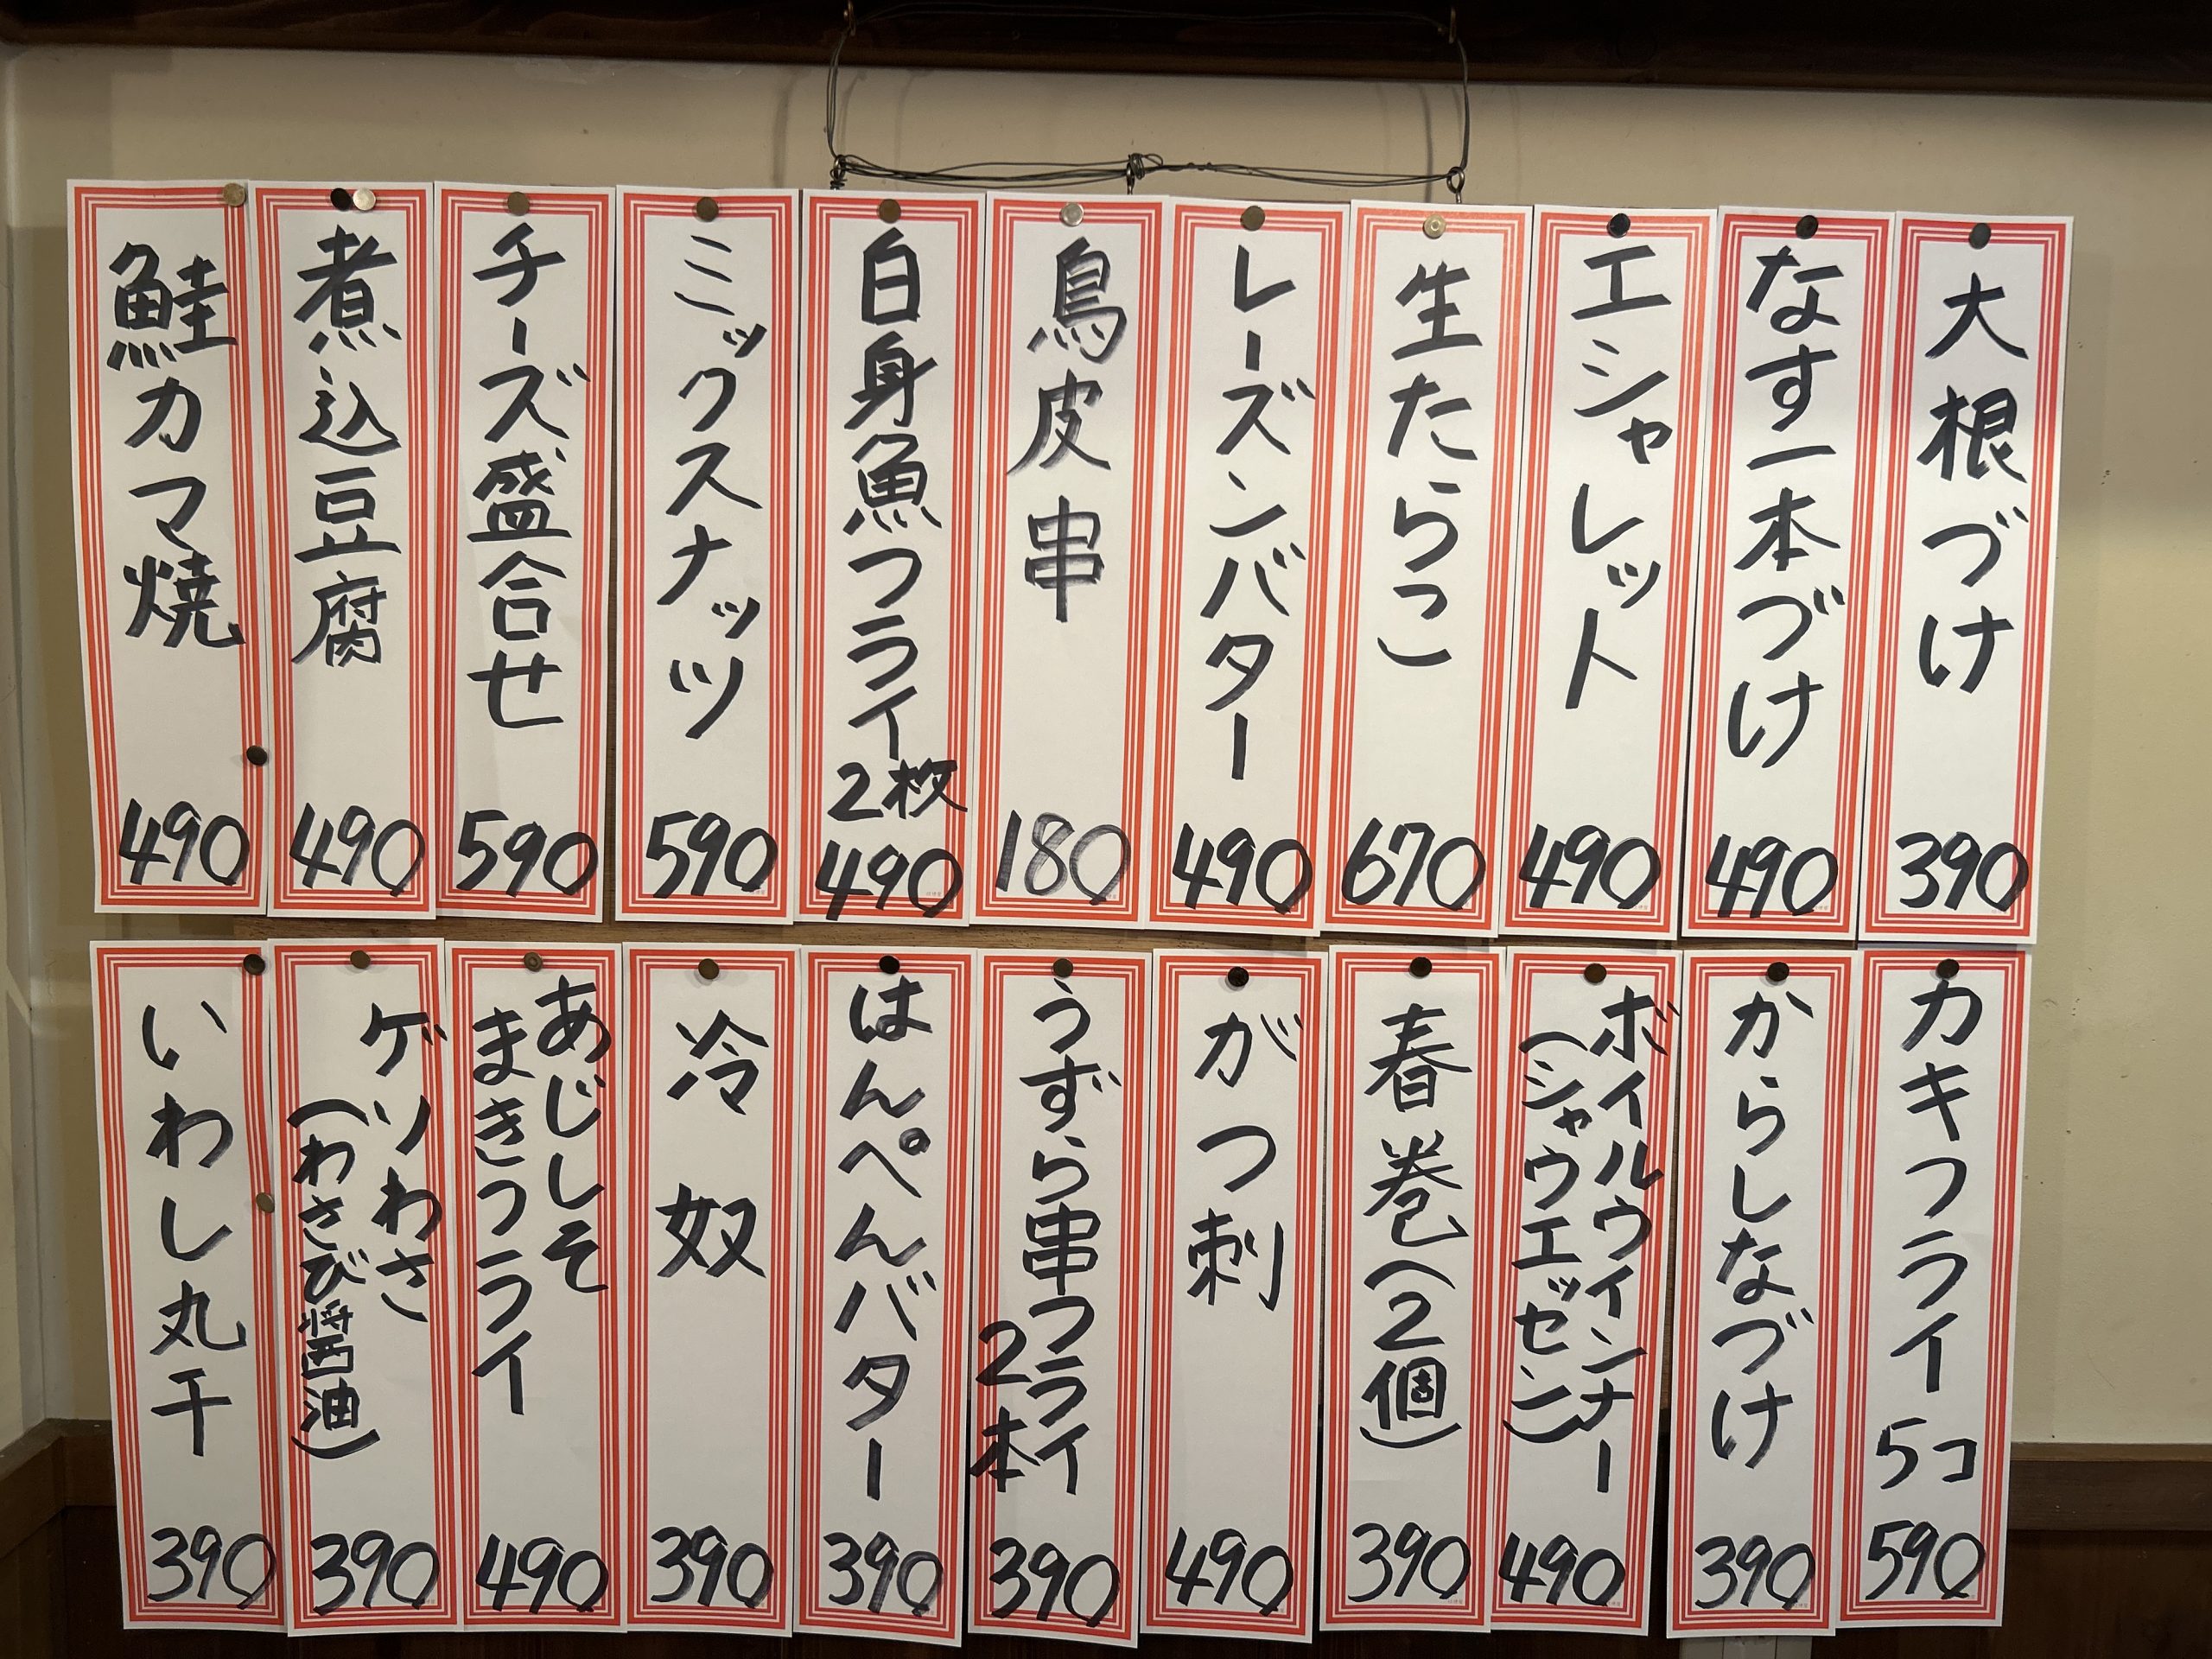 大根づけ
390
なす一本づけ
490
エシャレット
490
生たらこ
670
レーズンバター
490
鳥皮串
180
白身魚フライ
2枚
490
ミックスナッツ
590
チーズ盛合せ
590
煮込豆腐
490
鮭カマ焼
490
カキフライ 5コ
590
からしなづけ
390
ボイルウインナー
(シャウエッセン)
490
春巻(2個)
390
がつ刺
490
うずら串フライ
2本
390
はんぺんバター
390
冷奴
390
あじしそ
まきフライ
490
ゲソわさ
(わさび醤油)
390
いわし丸干
390